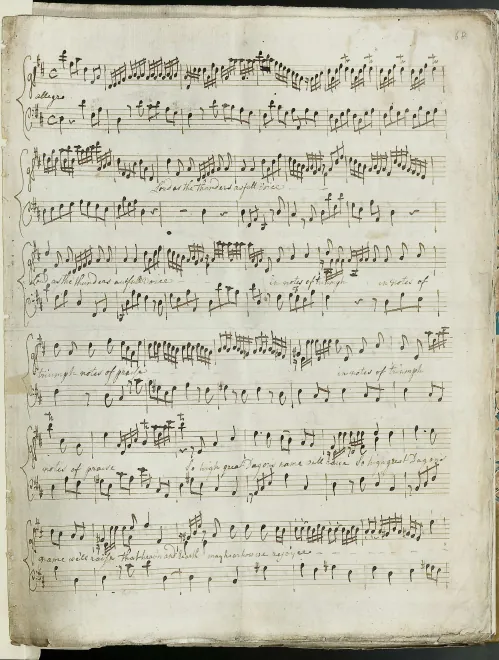 allegro
Loud as the thunders awfull voice
Loud as the thunders awfull voice in notes of triumph in notes of
triumph notes of praise in notes of triumph
notes of praise So high great Dagons name will raise So high great Dagons
name will raise that heaven and Earth may hear how we rejoyce